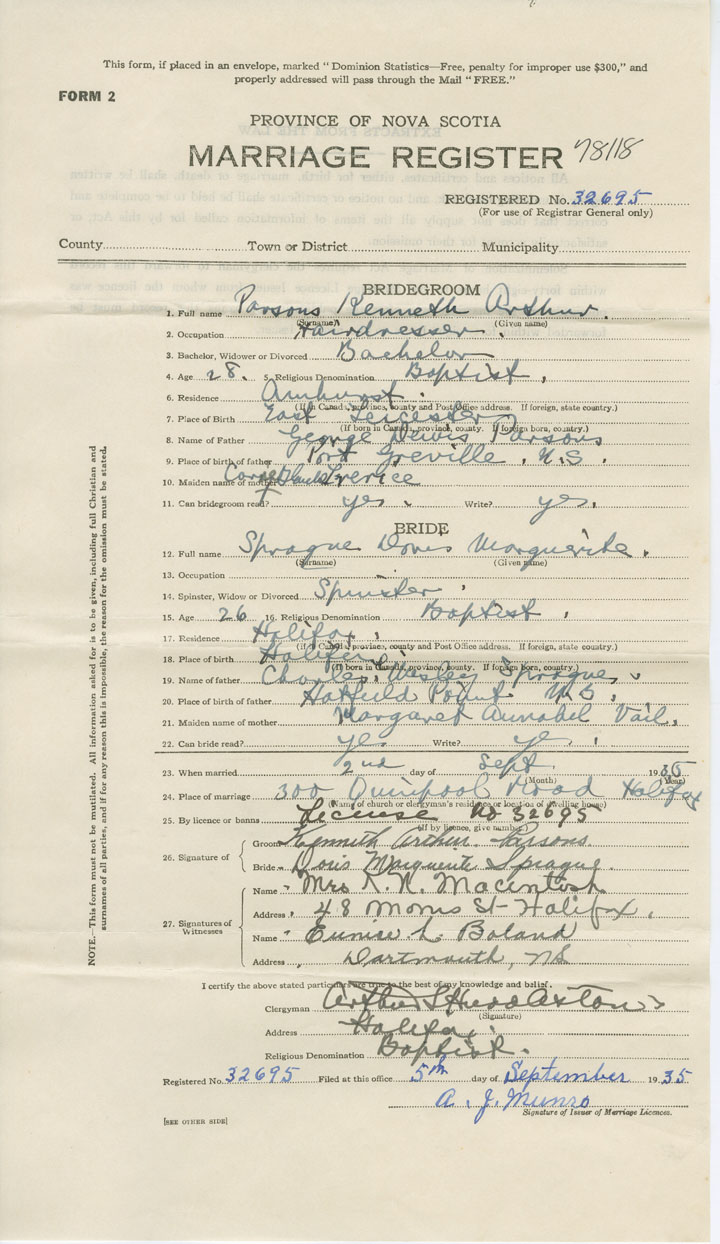 This form, if placed in an envelope, marked "Dominion Statistics—Free, penalty for improper use $300," and
properly addressed will pass through the Mail "FREE."
FORM 2
PROVINCE OF NOVA SCOTIA
MARRIAGE REGISTER 78118
REGISTERED No. 32695
(For use of Registrar General only)
County Town or District Municipality
BRIDEGROOM
1. Full name Parsons Kenneth Arthur.
(Surname) (Given name)
2. Occupation Hairdresser.
3. Bachelor, Widower or Divorced Bachelor
4. Age 28. 5. Religious Denomination Baptist,
6. Residence Amhurst.
(If in Canada, province, county and Post Office address. If foreign, state country.)
7. Place of Birth East Leicester
(If born in Canada, province, county. If foreign born, country.)
8. Name of Father George Parsons
9. Place of birth of father Port Greville, N.S.
10. Maiden name of mother
11. Can bridegroom read? yes. Write? yes.
BRIDE
12. Full name Sprague Doris Marguerite.
(Surname) (Given name)
13. Occupation
14. Spinster, Widow or Divorced Spinster,
15. Age 26 16. Religious Denomination Baptist,
17. Residence Halifax,
(If in Canada, province, county and Post Office address. If foreign, state country.)
18. Place of birth Halifax
(If born in Canada, province, county. If foreign born, country.)
19. Name of father Charles Wesley Sprague,
20. Place of birth of father Hatfield Point
21. Maiden name of mother Margaret Annabel Vail,
22. Can bride read? yes Write? ye,
23. When married 2nd day of Sept 1935
(Month) (Year)
24. Place of marriage 300 Quinpool Road Halifax
(Name of church or clergyman's residence or location of dwelling house)
25. By licence or banns License No 32695
(If by licence, give number)
26. Signature of Groom Kenneth Arthur Parsons.
Bride Doris Marguerite Sprague.
27. Signatures of Witnesses Name Mrs Macintosh
Address 48 Morris St Halifax,
Name Eunice L. Boland
Address Dartmouth, NS
NOTE.—This form must not be mutilated. All information asked for is to be given, including full Christian and
surnames of all parties, and if for any reason this is impossible, the reason for the omission must be stated.
I certify the above stated particulars are true to the best of my knowledge and belief.
Clergyman Arthur
(Signature)
Address Halifax.
Religious Denomination Baptist.
Registered No. 32695 Filed at this office 5th day of September 1935
A. J. Munro
Signature of Issuer of Marriage Licences.
[SEE OTHER SIDE]